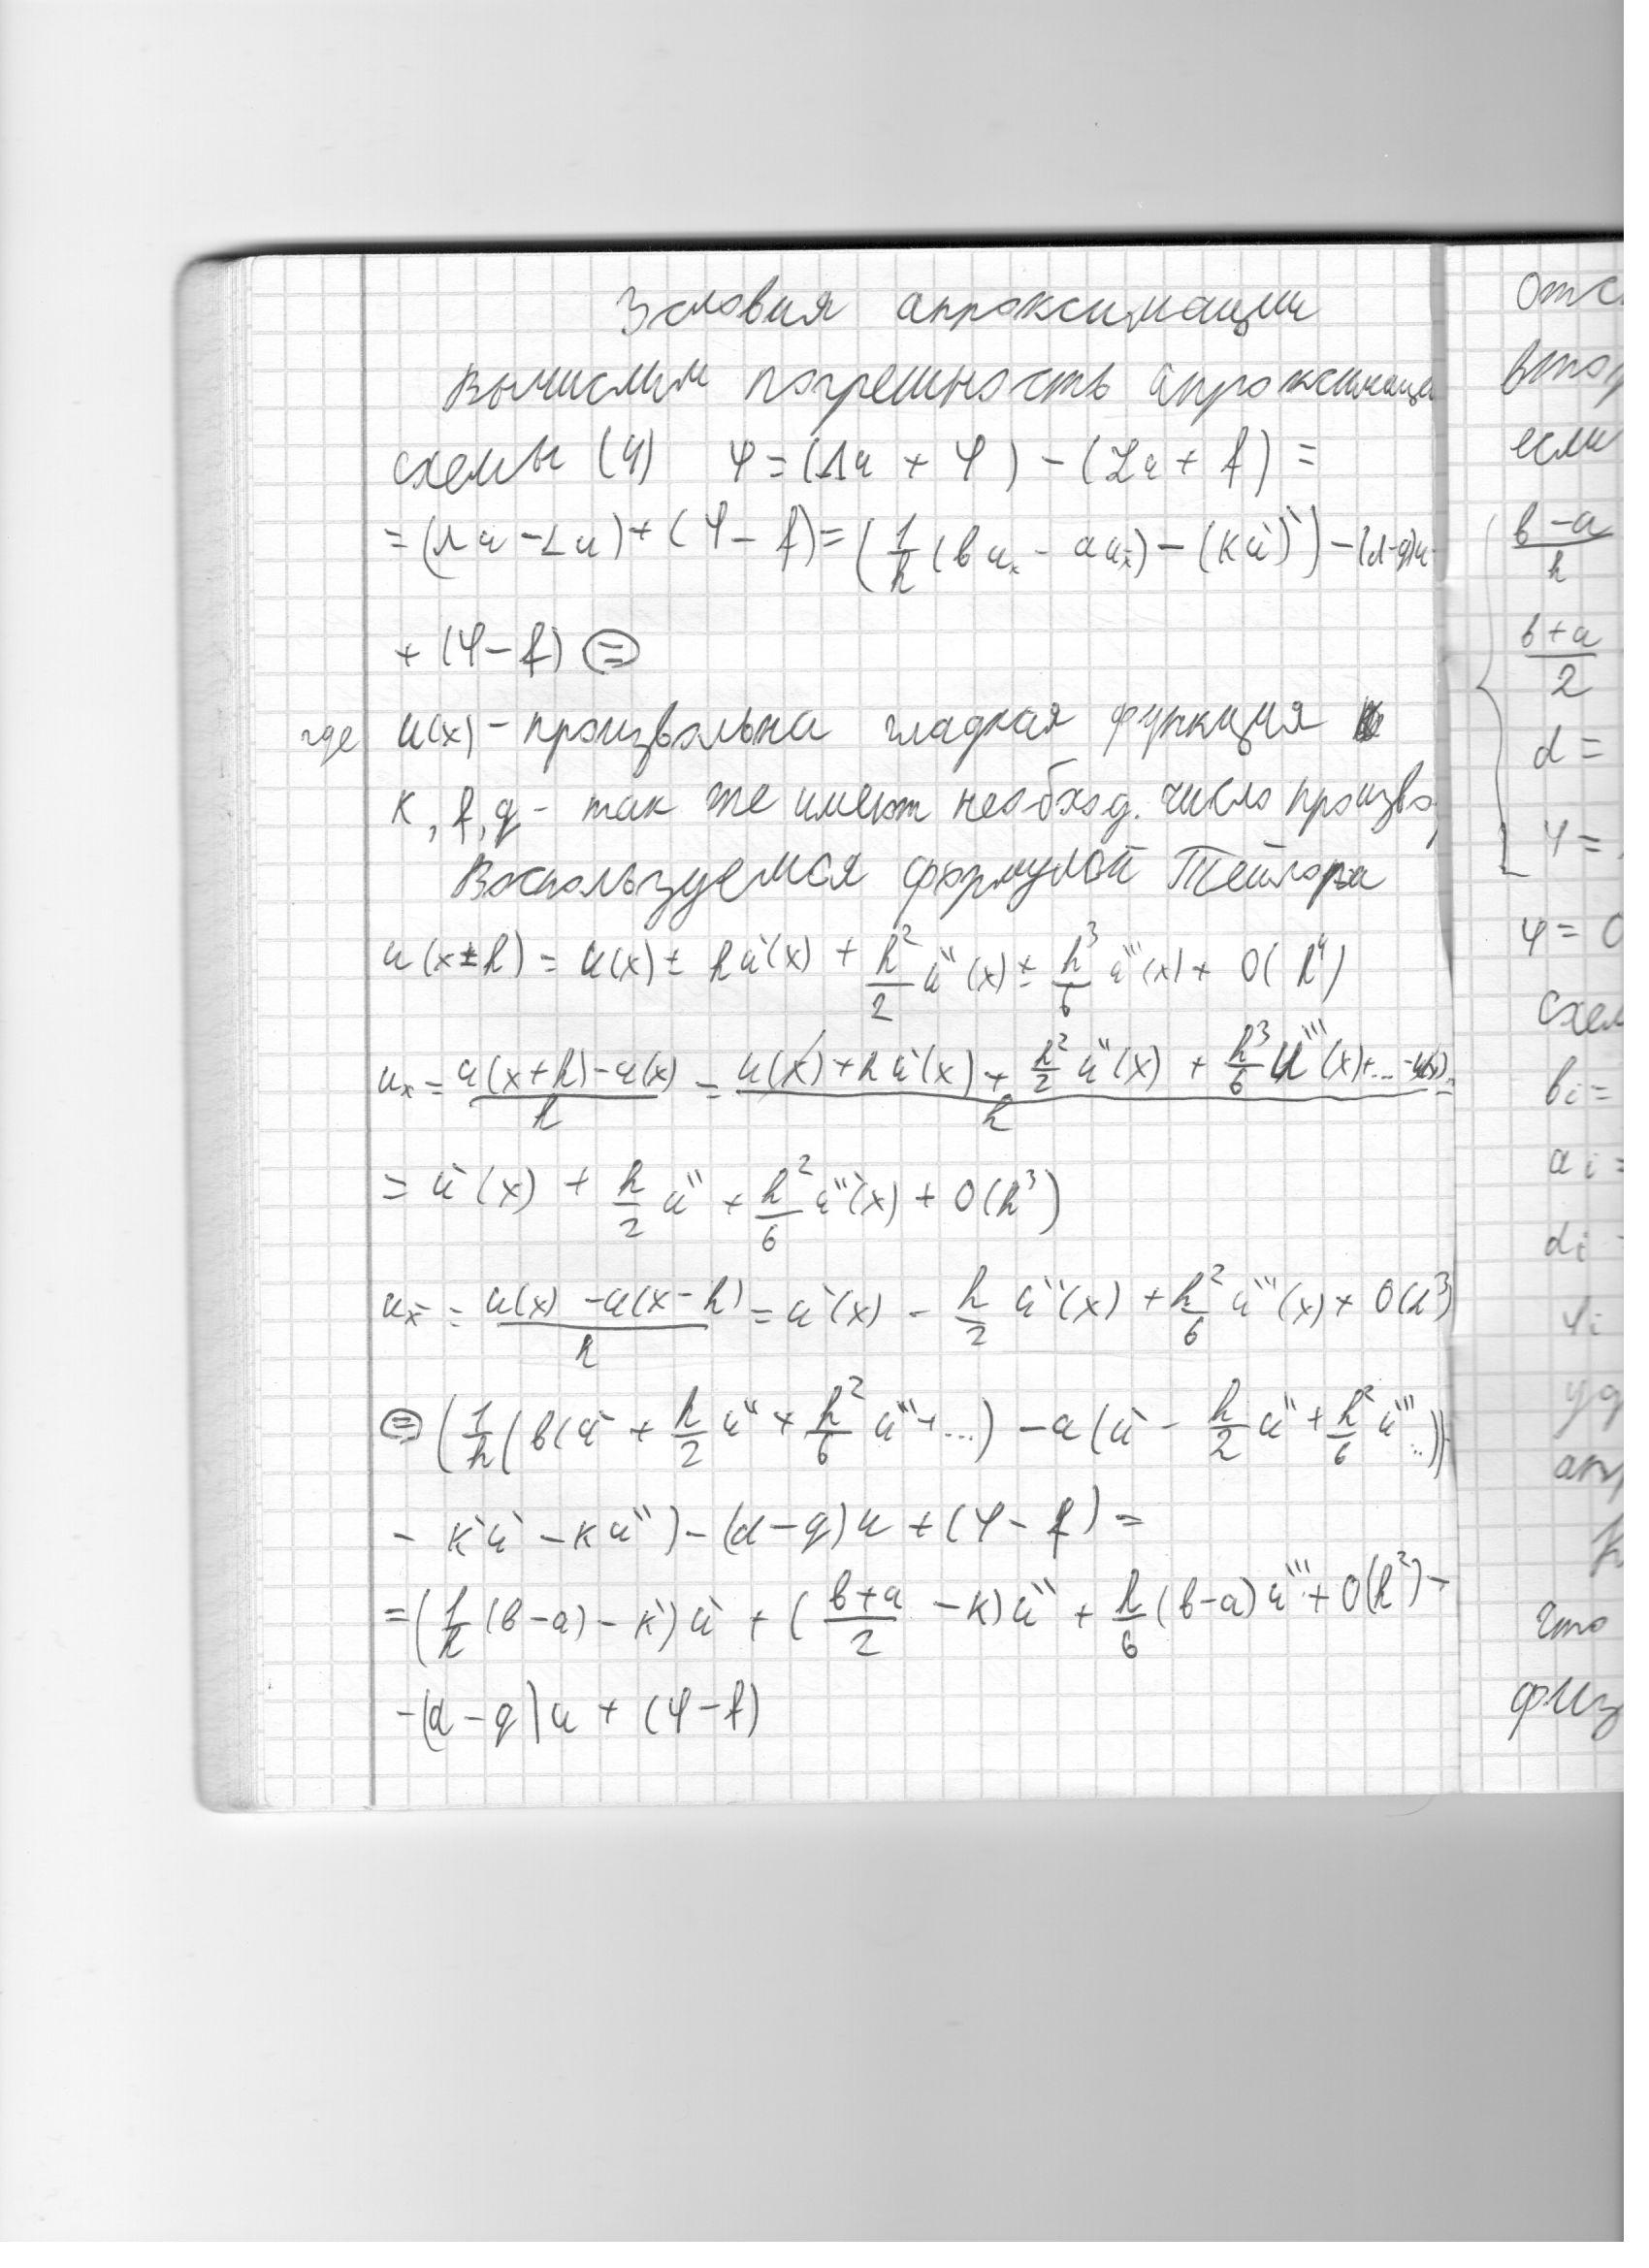 Условия апроксимации
Вычислим погрешность апроксимаци
схемы (4) ψ = (Λu + φ) - (Lu + f) =
= (Λu - Lu) + (φ - f) = (1/h (b u_x - a u_x̄) - (k u')') - (d-q)u
+ (φ - f) ⊜
где u(x) - произвольна гладкая функция
k, f, q - так же имеют необход. число произво
Воспользуемся формулой Тейлора
u(x±h) = u(x) ± hu'(x) + h²/2 u''(x) ± h³/6 u'''(x) + O(h⁴)
u_x = (u(x+h) - u(x))/h = (u(x) + hu'(x) + h²/2 u''(x) + h³/6 u'''(x) + ... - u(x))/h =
= u'(x) + h/2 u'' + h²/6 u'''(x) + O(h³)
u_x̄ = (u(x) - u(x-h))/h = u'(x) - h/2 u''(x) + h²/6 u'''(x) + O(h³)
⊜ (1/h (b(u' + h/2 u'' + h²/6 u''' + ...) - a(u' - h/2 u'' + h²/6 u''' ..)) -
- k'u' - ku'') - (d - q)u + (φ - f) =
= (1/h (b-a) - k')u' + ((b+a)/2 - k)u'' + h/6 (b-a)u''' + O(h²) -
- (d - q)u + (φ - f)
отс
втор
если
(b-a)/h
(b+a)/2
d =
φ =
ψ = O
схем
b_i =
a_i =
d_i
φ_i
уд
ап
что
физ